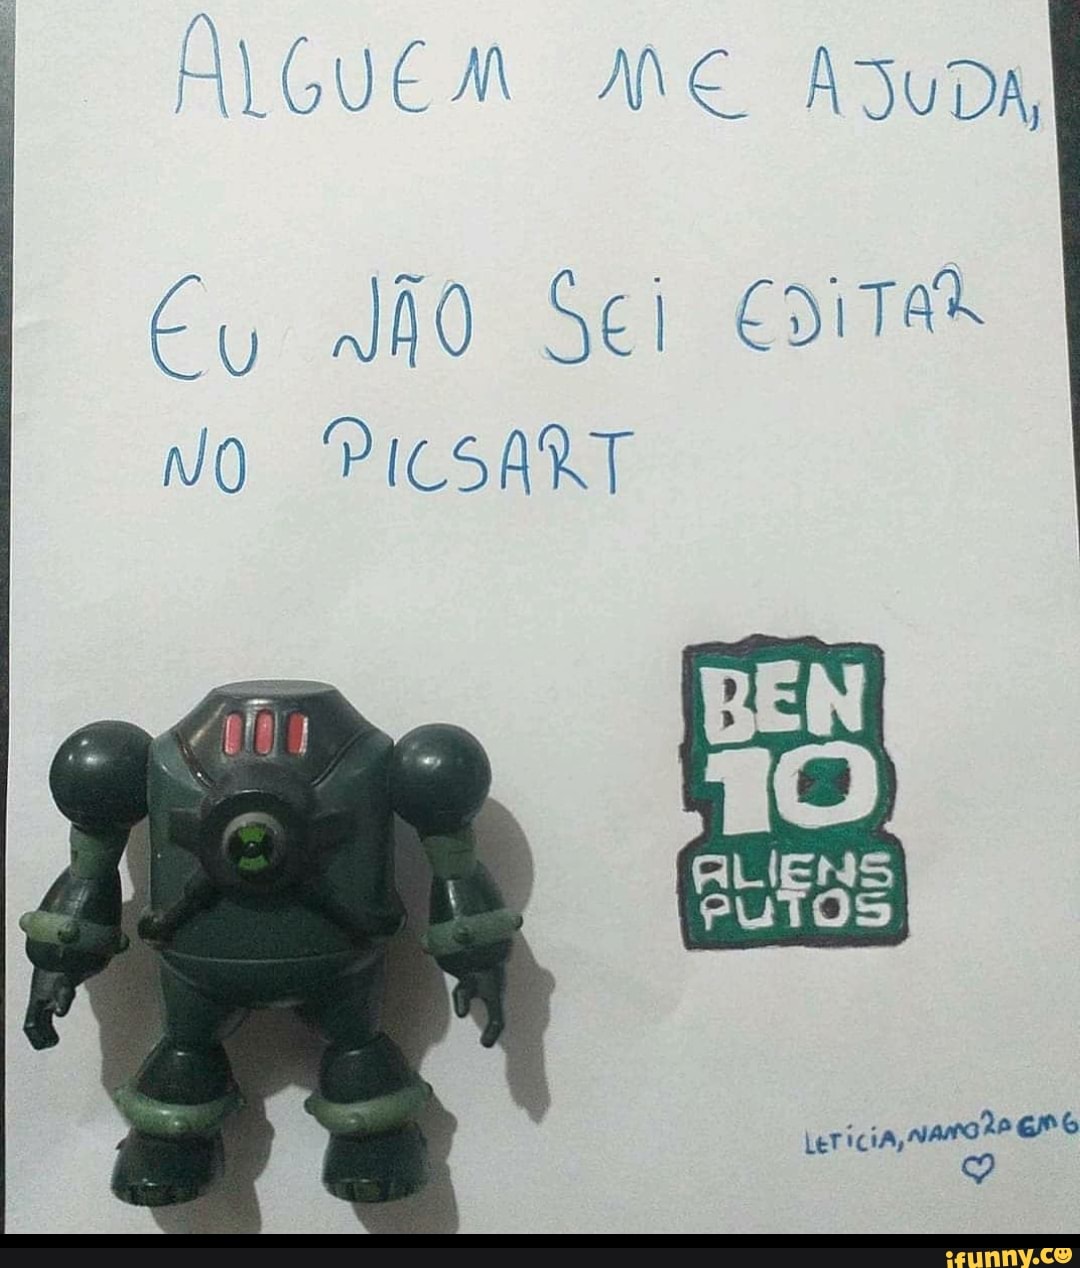 ALGUEM ME AJUDA,
EU NÃO SEI EDITAR
NO PICSART
BEN
10
ALIENS
PUTOS
LETICIA, NAMORA EMG
ifunny.co